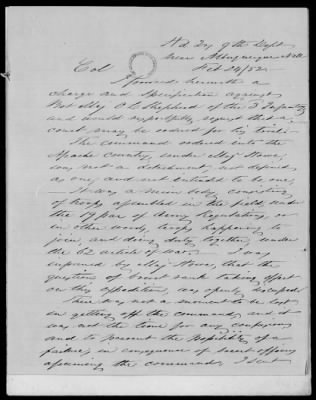 Hd Qrs 9th Dept
near Albuquerque N.M.
Feb 24/52
Col
I forward herewith a
charge and specification against
Bvt Maj O L Shepherd of the 3 Infantry
and would respectfully request that a
court may be ordered for his trial.
The command ordered into the
Apache Country, under Maj Howe,
was not a detachment, not defined
as any and not entitled to be one,
It was a main body, consisting
of troops assembled in the field, under
the par of Army Regulations, or
in other words, troops happening to
join, and doing duty together, under
the 62 article of war. I was
informed by Maj Howe, that the
question of brevet rank taking effect
on this expedition, was openly discussed.
There was not a moment to be lost
in getting off the command, and it
was not the time for any confusion
and to prevent the possibility of a
failure, in consequence of brevet officers
assuming the command, I sent